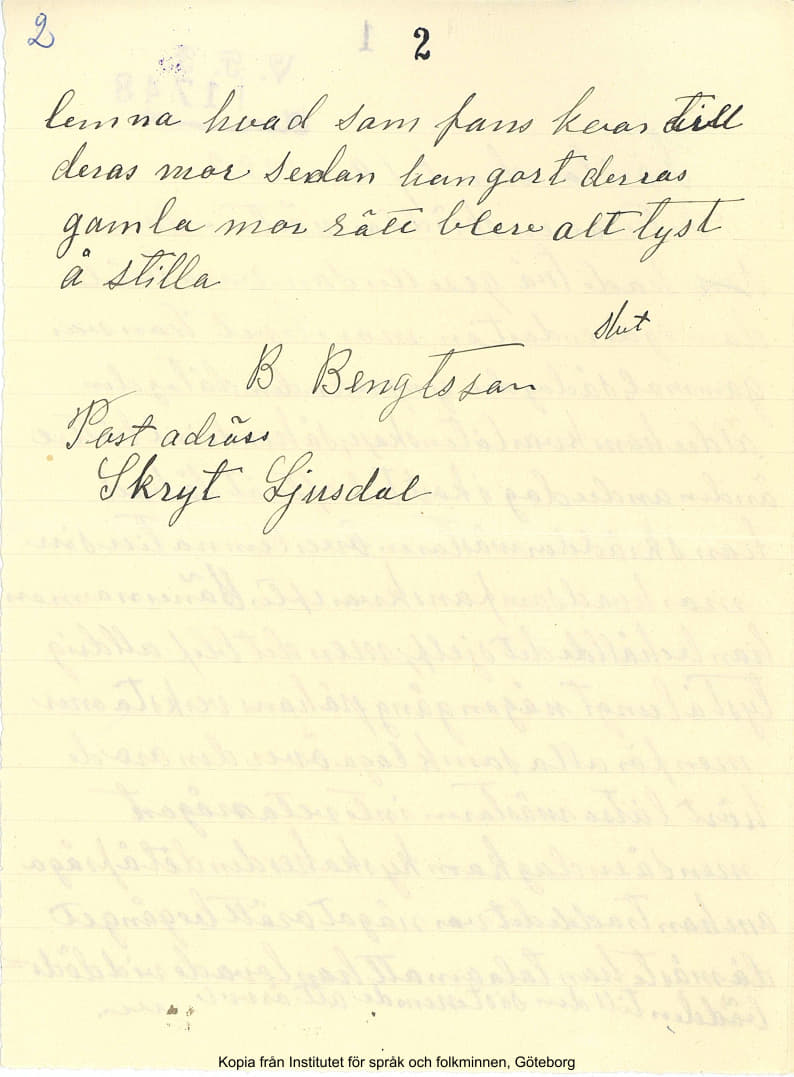 2
2
lemna hvad som fans kvar till
deras mor sedan han gort derras
gamla mor rätt blev alt tyst
å stilla
slut
B Bengtsson
Post adräss
Skryt Ljusdal
Kopia från Institutet för språk och folkminnen, Göteborg